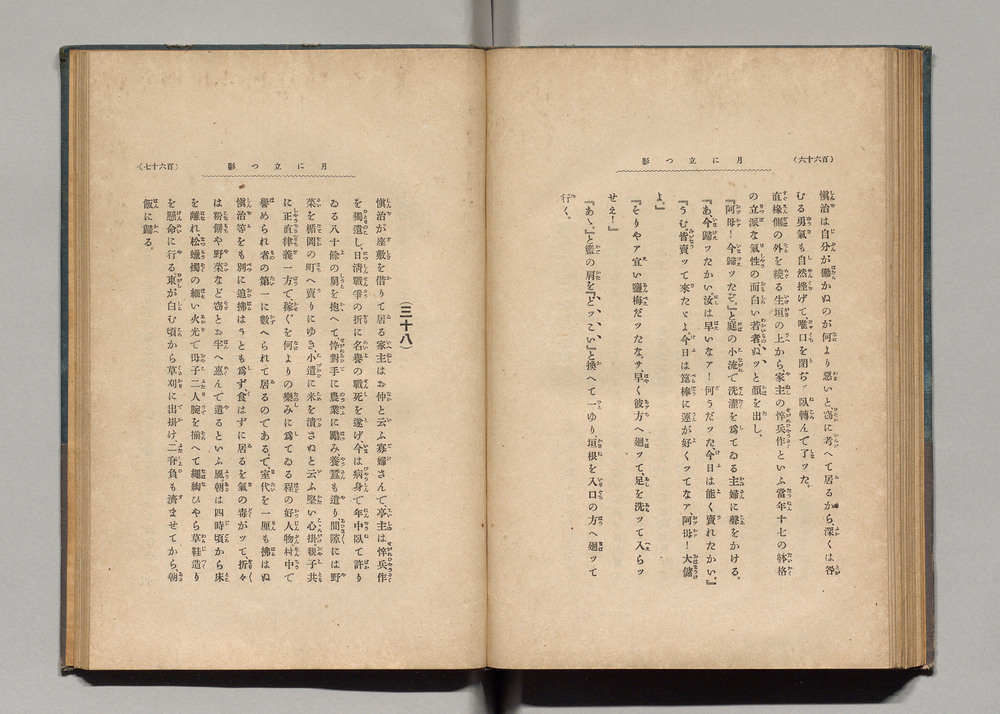 (百六十六)
月に立つ影
愼治は自分が働かぬのが何より惡いと、窃に考へて居るから、深くは咎
むる勇氣も自然挫げて、噤口を閉ぢ、臥轉んで了ッた。
直椽側の外を繞る生垣の上から、家主の悴兵作といふ當年十七の躰格
の立派な氣性の面白い若者、ぬッと顏を出し、
『阿母！今歸ッたぞ。』と庭の小流で洗濯を爲てゐる主婦に聲をかける。
『あ、今歸ッたかい、汝は早いなァ！何うだッた、今日は能く賣れたかい。』
『うむ、皆賣ッて來たよ。今日は篦棒に運が好くッてなァ、阿母！大儲
よ。』
『そりやァ宜い鹽梅だッたな、サ早く彼方へ廻ッて、足を洗ッて入らッ
せえ！』
『あゝ。』と籃の肩を、『どッこい』と換へて一ゆり、垣根を入口の方へ廻ッて
行く。
月に立つ影
(百六十七)
(三十八)
愼治が座敷を借りて居る家主はお仲と云ふ寡婦さんで、亭主は悴兵作
を獨遺し、日淸戰爭の折に名譽の戰死を遂げ、今は病身で年中臥て許り
ゐる八十餘の舅を抱へて、悴對手に農業に勵み、養蠶も遣り、間隙には野
菜を楯岡の町へ賣りにゆき、小遣に米を潰さぬと云ふ堅い心掛、親子共
に正直律義一方で、稼ぐを何よりの樂みに爲てゐる程の好人物、村中で
譽められ者の第一に數へられて居るのである。で、室代を一厘も拂はぬ
愼治等をも別に追拂はうとも爲ず、食はずに居るを氣の毒がッて、折々
は粉餅や野菜など窃とお半へ惠んで遣るといふ風、朝は四時頃から床
を離れ、松蠟燭の細い火光で母子二人腕を揃へて繩綯ひやら草鞋造り
を懸命に行る、東が白む頃から草刈に出掛け、二脊負も濟ませてから、朝
飯に歸る。